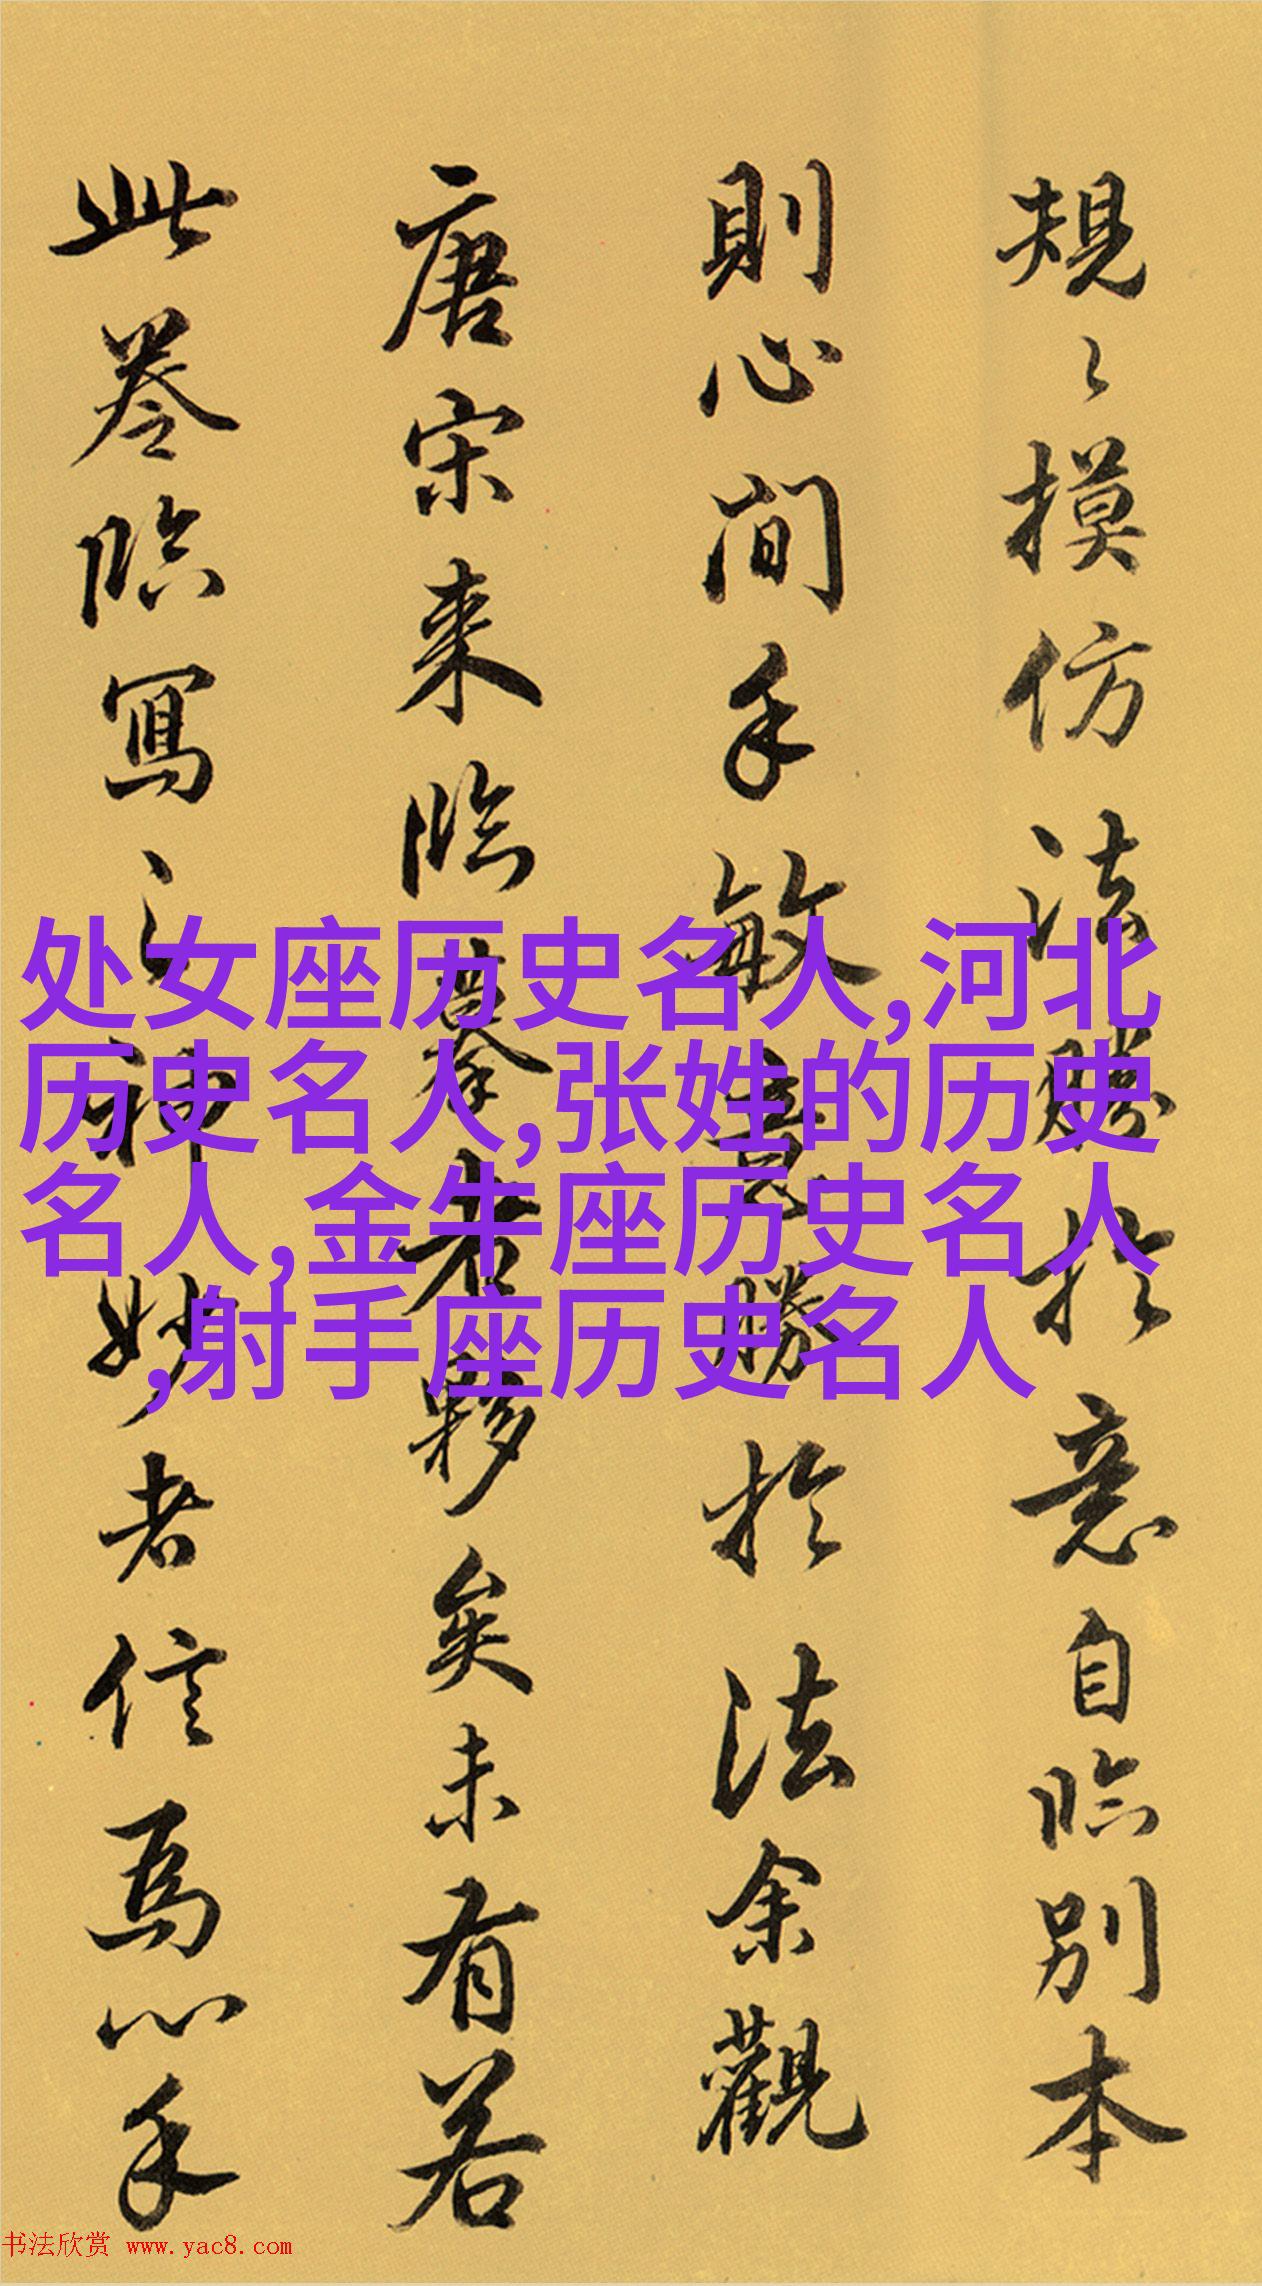 規〻摸仿法勝於意自臨別本
則心閒手敏意勝於法余觀
唐宋来臨摹者夥矣未有若
此卷臨寫之神妙者信為心手
处女座历史名人,河北
历史名人,张姓的历史
名人,金牛座历史名人
,射手座历史名人
书法欣赏 www.yac8.com